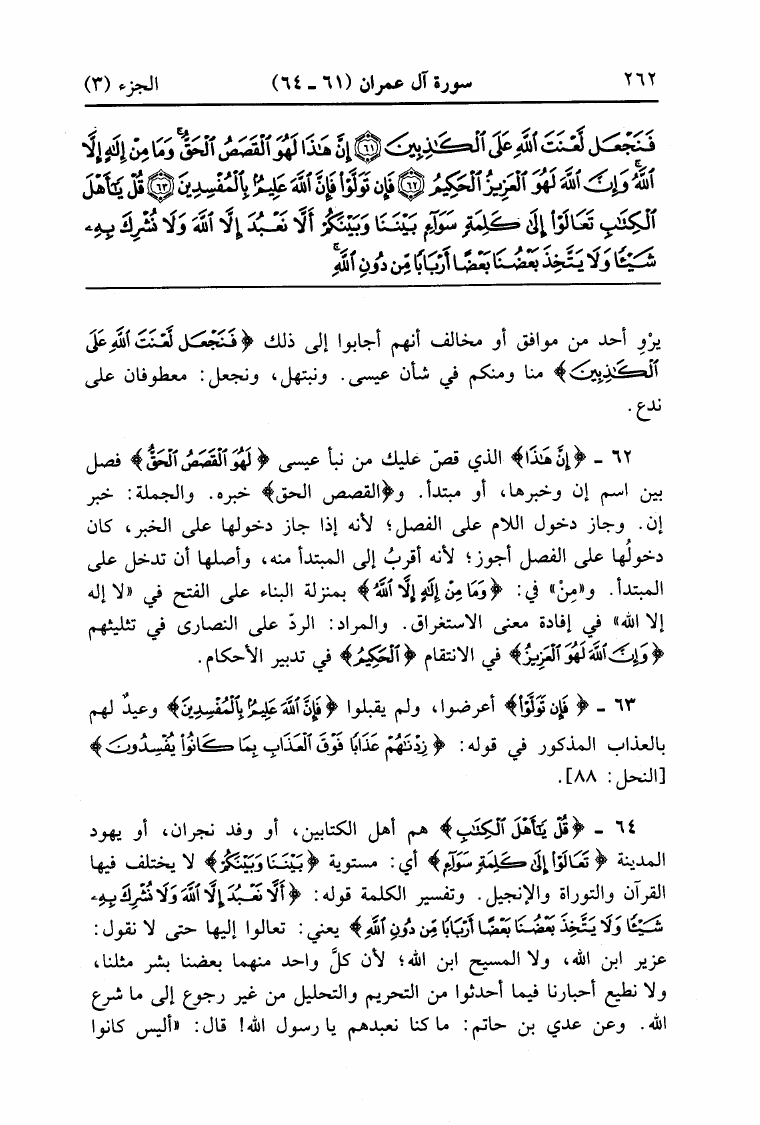 ٢٦٢ سورة آل عمران (٦١ ـ ٦٤) الجزء (٣)
فَنَجْعَل لَّعْنَتَ اللَّهِ عَلَى الْكَاذِبِينَ ﴿٦١﴾ إِنَّ هَٰذَا لَهُوَ الْقَصَصُ الْحَقُّ ۚ وَمَا مِنْ إِلَٰهٍ إِلَّا
اللَّهُ ۚ وَإِنَّ اللَّهَ لَهُوَ الْعَزِيزُ الْحَكِيمُ ﴿٦٢﴾ فَإِن تَوَلَّوْا فَإِنَّ اللَّهَ عَلِيمٌۢ بِالْمُفْسِدِينَ ﴿٦٣﴾ قُلْ يَٰٓأَهْلَ
الْكِتَٰبِ تَعَالَوْا إِلَىٰ كَلِمَةٍ سَوَآءٍۭ بَيْنَنَا وَبَيْنَكُمْ أَلَّا نَعْبُدَ إِلَّا اللَّهَ وَلَا نُشْرِكَ بِهِۦ
شَيْـًٔا وَلَا يَتَّخِذَ بَعْضُنَا بَعْضًا أَرْبَابًا مِّن دُونِ اللَّهِ ۚ
يرْوِ أحد من موافق أو مخالف أنهم أجابوا إلى ذلك ﴿فَنَجْعَل لَّعْنَتَ اللَّهِ عَلَى
الْكَٰذِبِينَ﴾ منا ومنكم في شأن عيسى. ونبتهل، ونجعل: معطوفان على
ندع.
٦٢ ـ ﴿إِنَّ هَٰذَا﴾ الذي قصّ عليك من نبأ عيسى ﴿لَهُوَ الْقَصَصُ الْحَقُّ﴾ فصل
بين اسم إن وخبرها، أو مبتدأ. و﴿القصص الحق﴾ خبره. والجملة: خبر
إن. وجاز دخول اللام على الفصل؛ لأنه إذا جاز دخولها على الخبر، كان
دخولُها على الفصل أجوز؛ لأنه أقربُ إلى المبتدأ منه، وأصلها أن تدخل على
المبتدأ. و«مِنْ» في: ﴿وَمَا مِنْ إِلَٰهٍ إِلَّا اللَّهُ﴾ بمنزلة البناء على الفتح في «لا إله
إلا الله» في إفادة معنى الاستغراق. والمراد: الردّ على النصارى في تثليثهم
﴿وَإِنَّ اللَّهَ لَهُوَ الْعَزِيزُ﴾ في الانتقام ﴿الْحَكِيمُ﴾ في تدبير الأحكام.
٦٣ ـ ﴿فَإِن تَوَلَّوْا﴾ أعرضوا، ولم يقبلوا ﴿فَإِنَّ اللَّهَ عَلِيمٌۢ بِالْمُفْسِدِينَ﴾ وعيدٌ لهم
بالعذاب المذكور في قوله: ﴿زِدْنَٰهُمْ عَذَابًا فَوْقَ الْعَذَابِ بِمَا كَانُوا يُفْسِدُونَ﴾
[النحل: ٨٨].
٦٤ ـ ﴿قُلْ يَٰٓأَهْلَ الْكِتَٰبِ﴾ هم أهل الكتابين، أو وفد نجران، أو يهود
المدينة ﴿تَعَالَوْا إِلَىٰ كَلِمَةٍ سَوَآءٍۭ﴾ أي: مستوية ﴿بَيْنَنَا وَبَيْنَكُمْ﴾ لا يختلف فيها
القرآن والتوراة والإنجيل. وتفسير الكلمة قوله: ﴿أَلَّا نَعْبُدَ إِلَّا اللَّهَ وَلَا نُشْرِكَ بِهِۦ
شَيْـًٔا وَلَا يَتَّخِذَ بَعْضُنَا بَعْضًا أَرْبَابًا مِّن دُونِ اللَّهِ﴾ يعني: تعالوا إليها حتى لا نقول:
عزير ابن الله، ولا المسيح ابن الله؛ لأن كلَّ واحد منهما بعضنا بشر مثلنا،
ولا نطيع أحبارنا فيما أحدثوا من التحريم والتحليل من غير رجوع إلى ما شرع
الله. وعن عدي بن حاتم: ما كنا نعبدهم يا رسول الله! قال: «أليس كانوا